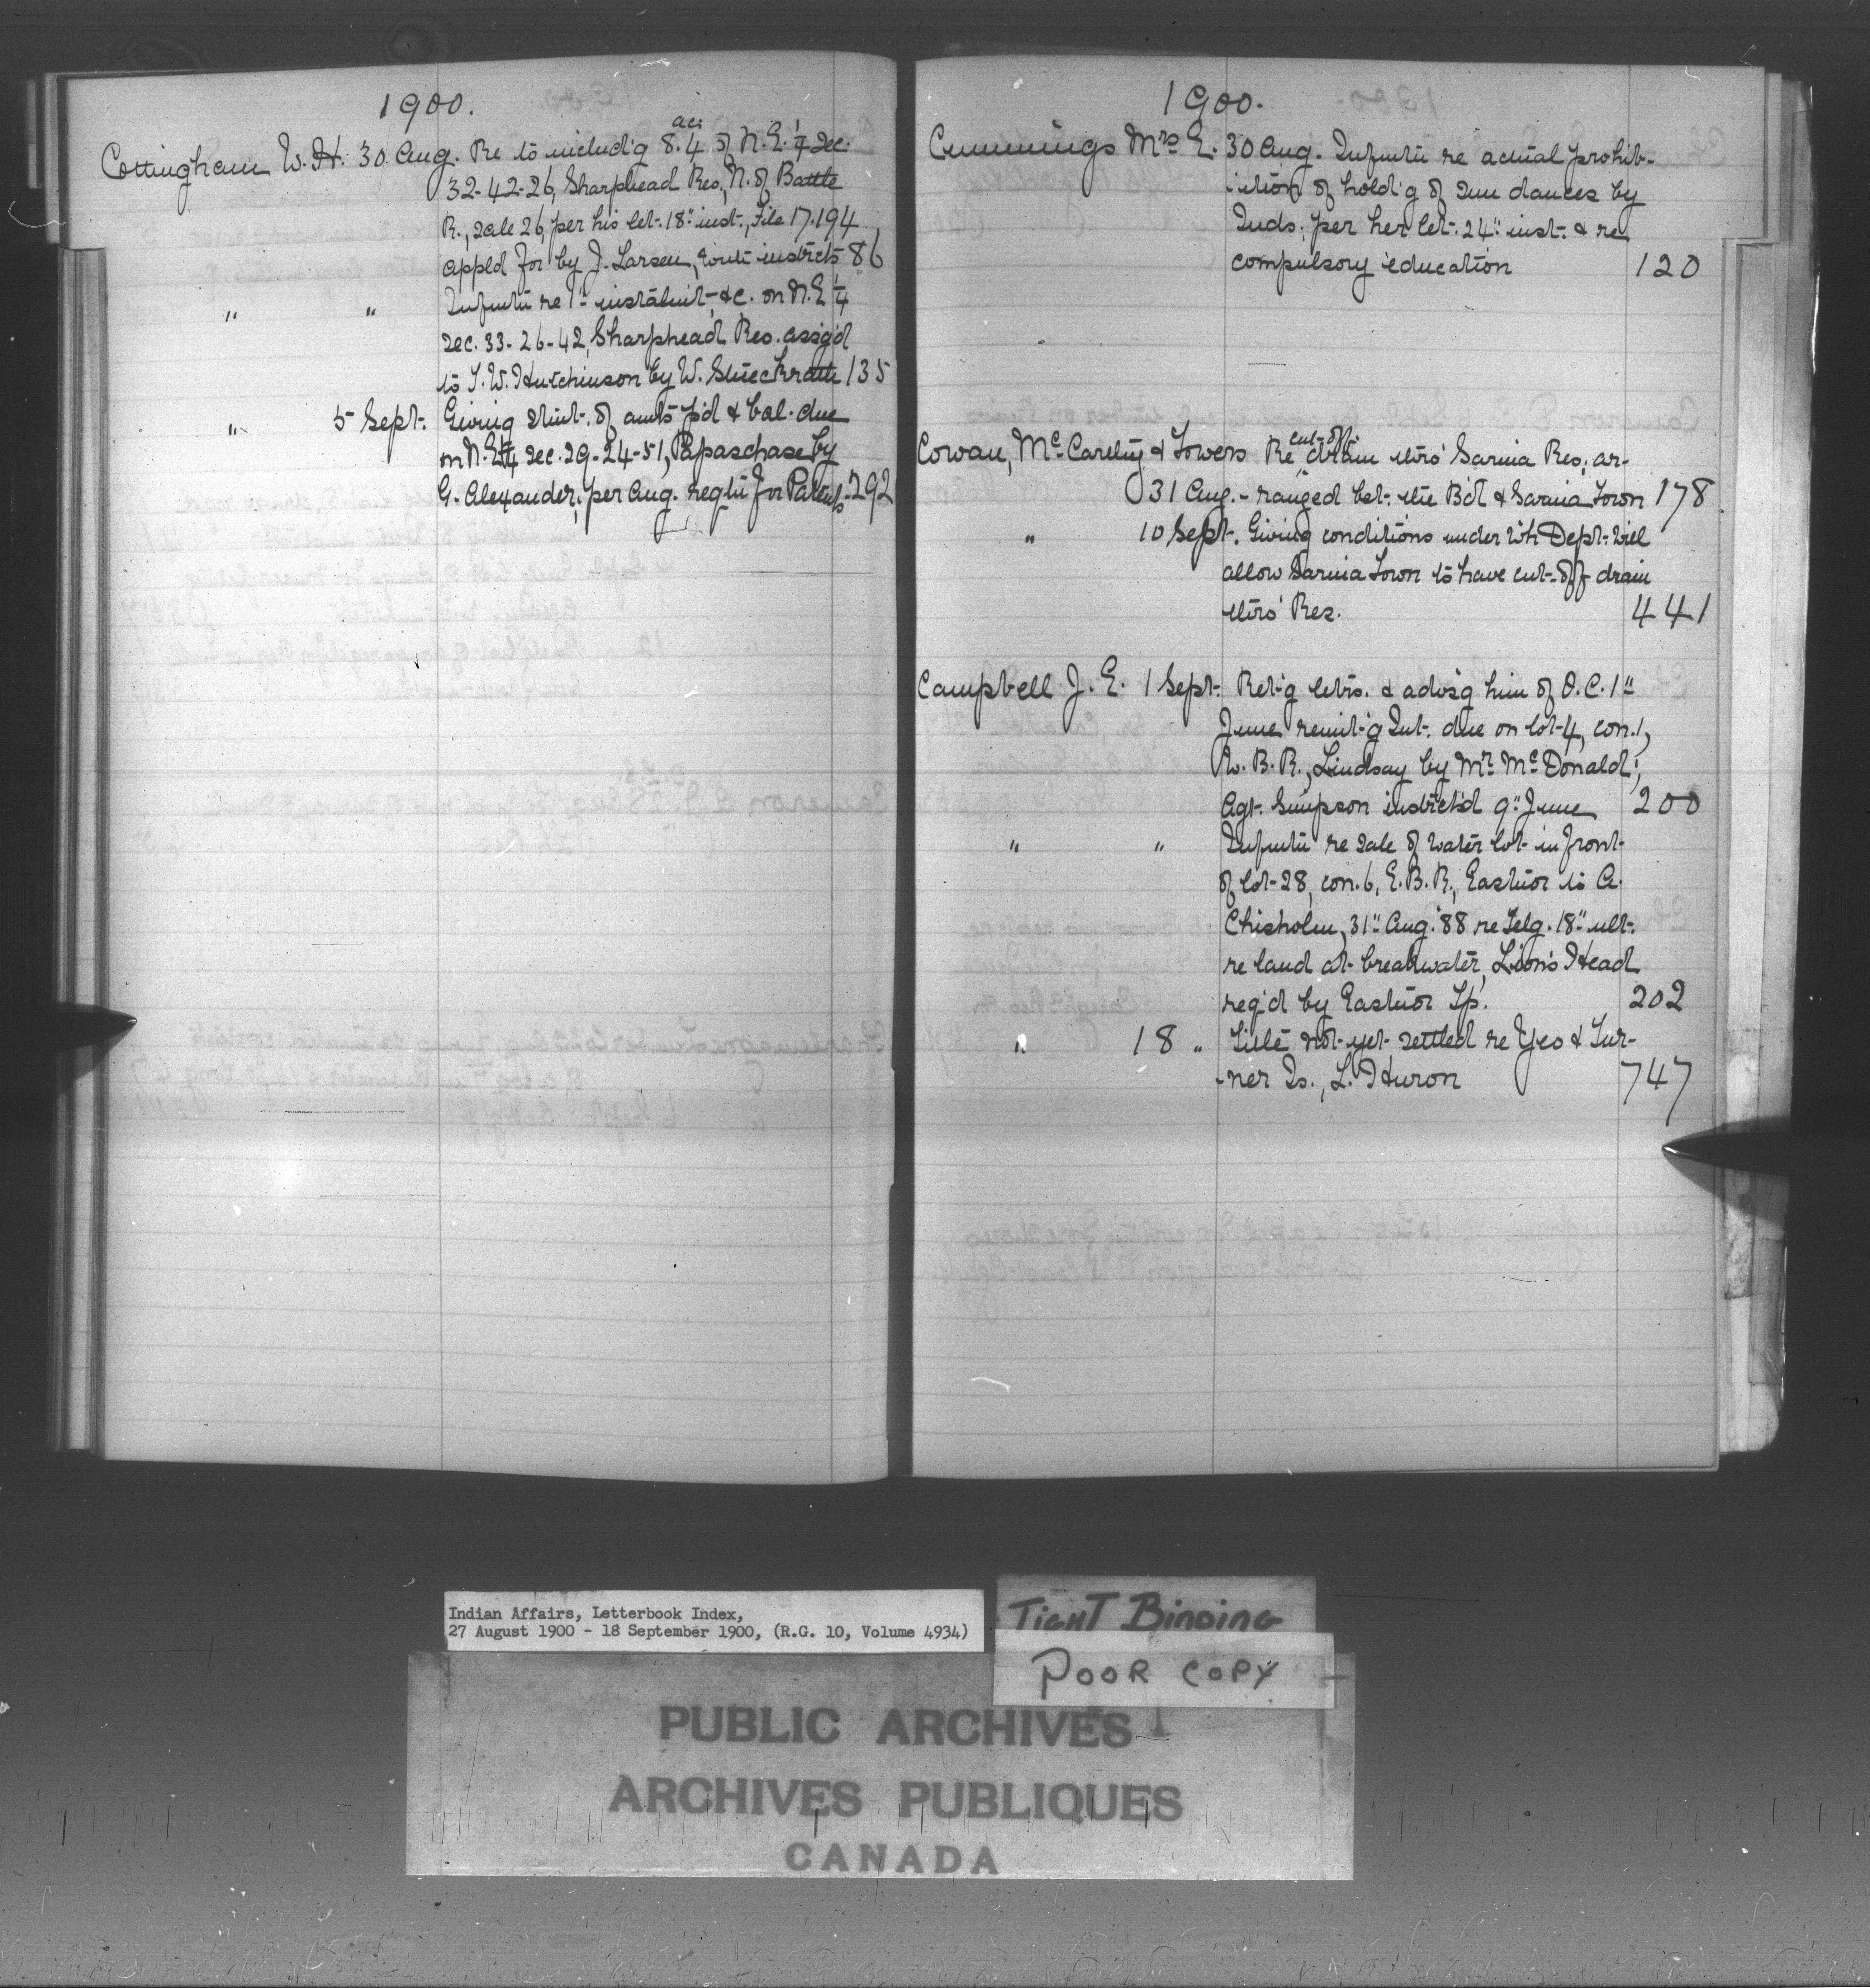 1900.
Cottingham W. H. 30 Aug. Re to includ'g 8.4 acs of N.E. 1/4 Sec.
32-42-26, Sharphead Res, N. of Battle
R., Sale 26, per his let. 18" inst., File 17.194
appl'd for by J. Larsen, with instrcts 86
" " Infmtn re 1st instalmt, &c. on N.E 1/4
Sec. 33-26-42, Sharphead Res. assg'd
to T. W. Hutchinson by W. 135
" 5 Sept. Giving stmt. of amts p'd & bal. due
on N.E 1/4 Sec. 29-24-51, Papaschase by
G. Alexander, per Aug. regtn for Patents 292
1900.
Cummings Mrs E. 30 Aug. Infmtn re actual prohib-
-ition of hold'g of sun dances by
Inds. per her let. 24" inst. & re
compulsory education 120
Cowan, McCarthy & Towers Re cut-off drain thro' Sarnia Res, ar-
31 Aug. -ranged bet. the B'd & Sarnia Town 178
" 10 Sept. Giving conditions under wh Dept. will
allow Sarnia Town to have cut-off drain
thro' Res. 441
Campbell J. E. 1 Sept. Ret'g letrs. & advis'g him of O.C. 1"
June remit'g Int. due on lot 4, con. 1,
W. B. R., Lindsay by Mr. McDonald,
Agt. Simpson instrct'd 9" June 200
" " Infmtn re sale of water lot in front
of lot 28, con. 6, E. B. R., Eastnor to A.
Chisholm, 31" Aug. '88 re Telg. 18" ult.
re land at breakwater, Lion's Head
req'd by Eastnor Tp. 202
" 18 " Title not yet settled re Yeo & Tur-
-ner Is., L. Huron 747
Indian Affairs, Letterbook Index,
27 August 1900 - 18 September 1900, (R.G. 10, Volume 4934)
TIGHT BINDING
POOR COPY
PUBLIC ARCHIVES
ARCHIVES PUBLIQUES
CANADA